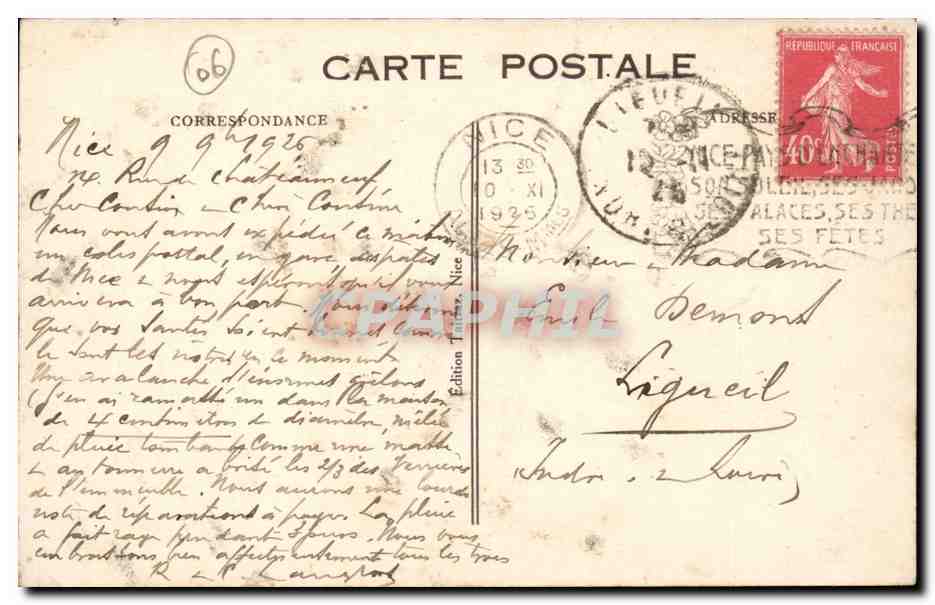 06
CARTE POSTALE
CORRESPONDANCE
ADRESSE
RÉPUBLIQUE FRANÇAISE
40c
POSTES
NICE
13 30
10 - XI
1926
12 - 11
26
NICE-PAYS
SON SOLEIL, SES JARD
SES PALACES, SES THE
SES FÊTES
Nice 9 9bre 1926
Rue de Châteauneuf
Cher Cousin & Chère Cousine
Nous vous avons expédié ce matin
un colis postal, en gare,
de Nice & nous espérons qu'il vous
arrivera à bon port. Nous désirons
que vos santés soient
le sont les nôtres en ce moment.
Une avalanche d'énormes grêlons
(j'en ai ramassé un dans la maison
de 4 centimètres de diamètre, mêlée
de pluie tombant comme une masse
& au tonnerre a brisé les 2/3 des verrières
de l'immeuble. Nous aurons une lourde
note de réparations à payer. La pluie
a fait rage pendant 3 jours. Nous vous
embrassons bien affectueusement tous les trois
Monsieur & Madame
Emile Demont
Ligueil
Indre & Loire
Édition Nice
CPAPHIL